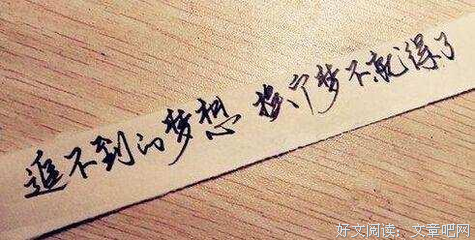 追不到的梦想 换个梦不就得了
好文阅读：文章吧网